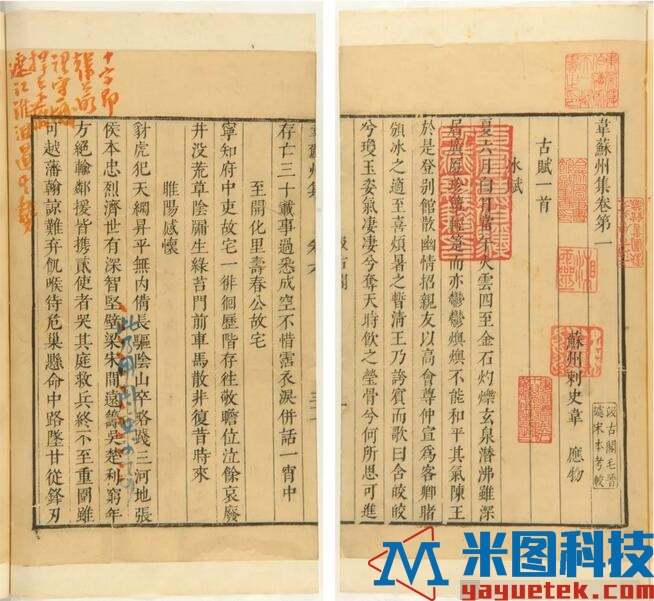 韋蘇州集卷第一
蘇州刺史韋 應物
汲古閣毛晉
據宋本考較
古賦一首
冰賦
夏六月白日當午火雲四至金石灼爍玄泉潛沸雖深
居廣厦珍簟輕箑而亦鬱鬱燠燠不能和平其氣陳王
於是登别館散幽情招親友以高會尊仲宣爲客卿睹
頒冰之適至喜煩暑之暫清王乃誇賓而歌曰含皎皎
兮瓊玉姿氣凄凄兮奪天時飲之瑩骨兮何所思可進
汲古閣
存亡三十載事過悉成空不惜霑衣淚併話一宵中
至開化里壽春公故宅
寧知府中吏故宅一徘徊歷階存往敬瞻位泣餘哀廢
井没荒草陰牖生綠苔門前車馬散非復昔時來
睢陽感懷
豺虎犯天綱昇平無内備長驅陰山卒略踐三河地張
侯本忠烈濟世有深智堅壁梁宋間遠籌吳楚利窮年
方絕輸鄰援皆携貳使者哭其庭救兵終不至重圍雖
可越藩翰諒難弃飢喉待危巢懸命中路墜甘從鋒刃
米图科技
yayuetek.com